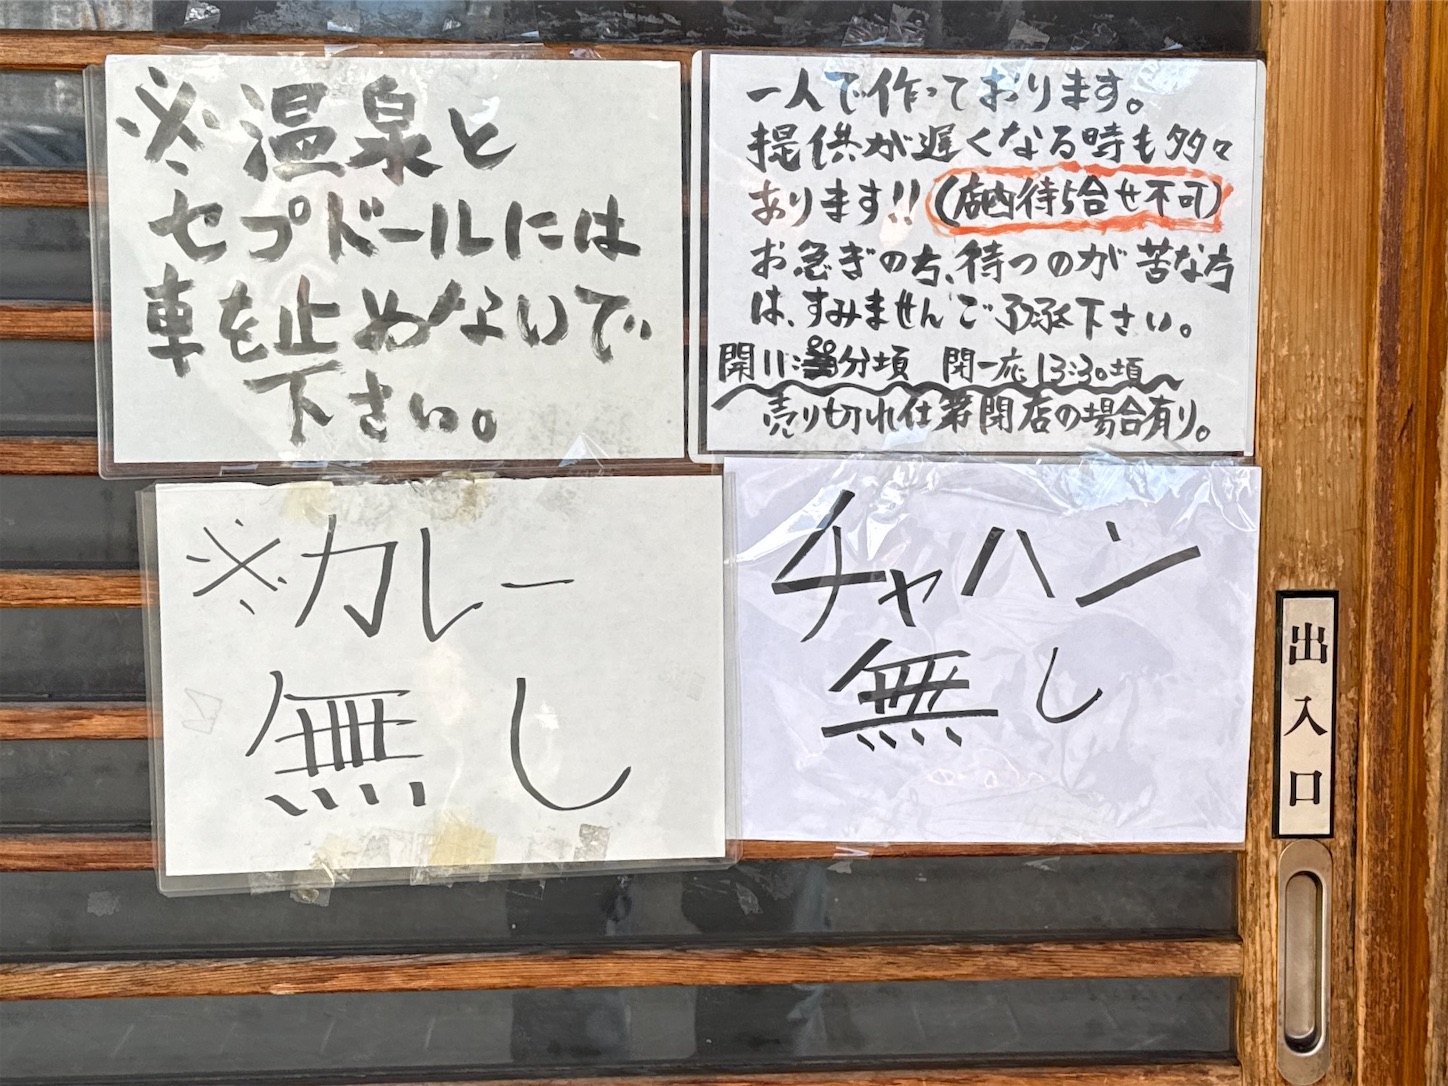 ※温泉と
セプドールには
車を止めないで
下さい。
一人で作っております。
提供が遅くなる時も多々
あります!!(店内待ち合せ不可)
お急ぎの方、待つのが苦な方
は、すみませんご了承下さい。
開11:分頃 閉一応13:30頃
売り切れ仕第閉店の場合有り。
※カレー
無し
チャハン
無し
出入口